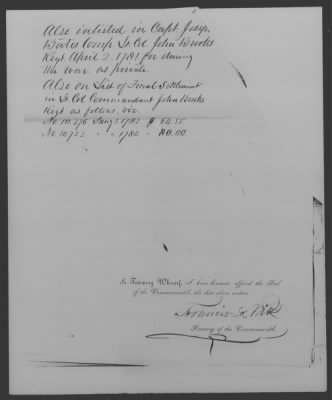 Also inlisted in Capt Joseph
Bates Comp Lt Col John Brooks
Regt April 2 1781 for during
the war as private
Also on List of Final Settlement
in Lt Col Commandant John Brooks
Regt as follows, viz
No. 10,276 Jany 1. 1782 $
No. " " 1782 " 80.00.
In Testimony Whereof, I have hereunto affixed the Seal
of the Commonwealth, the date above written.
Francis
Secretary of the Commonwealth.